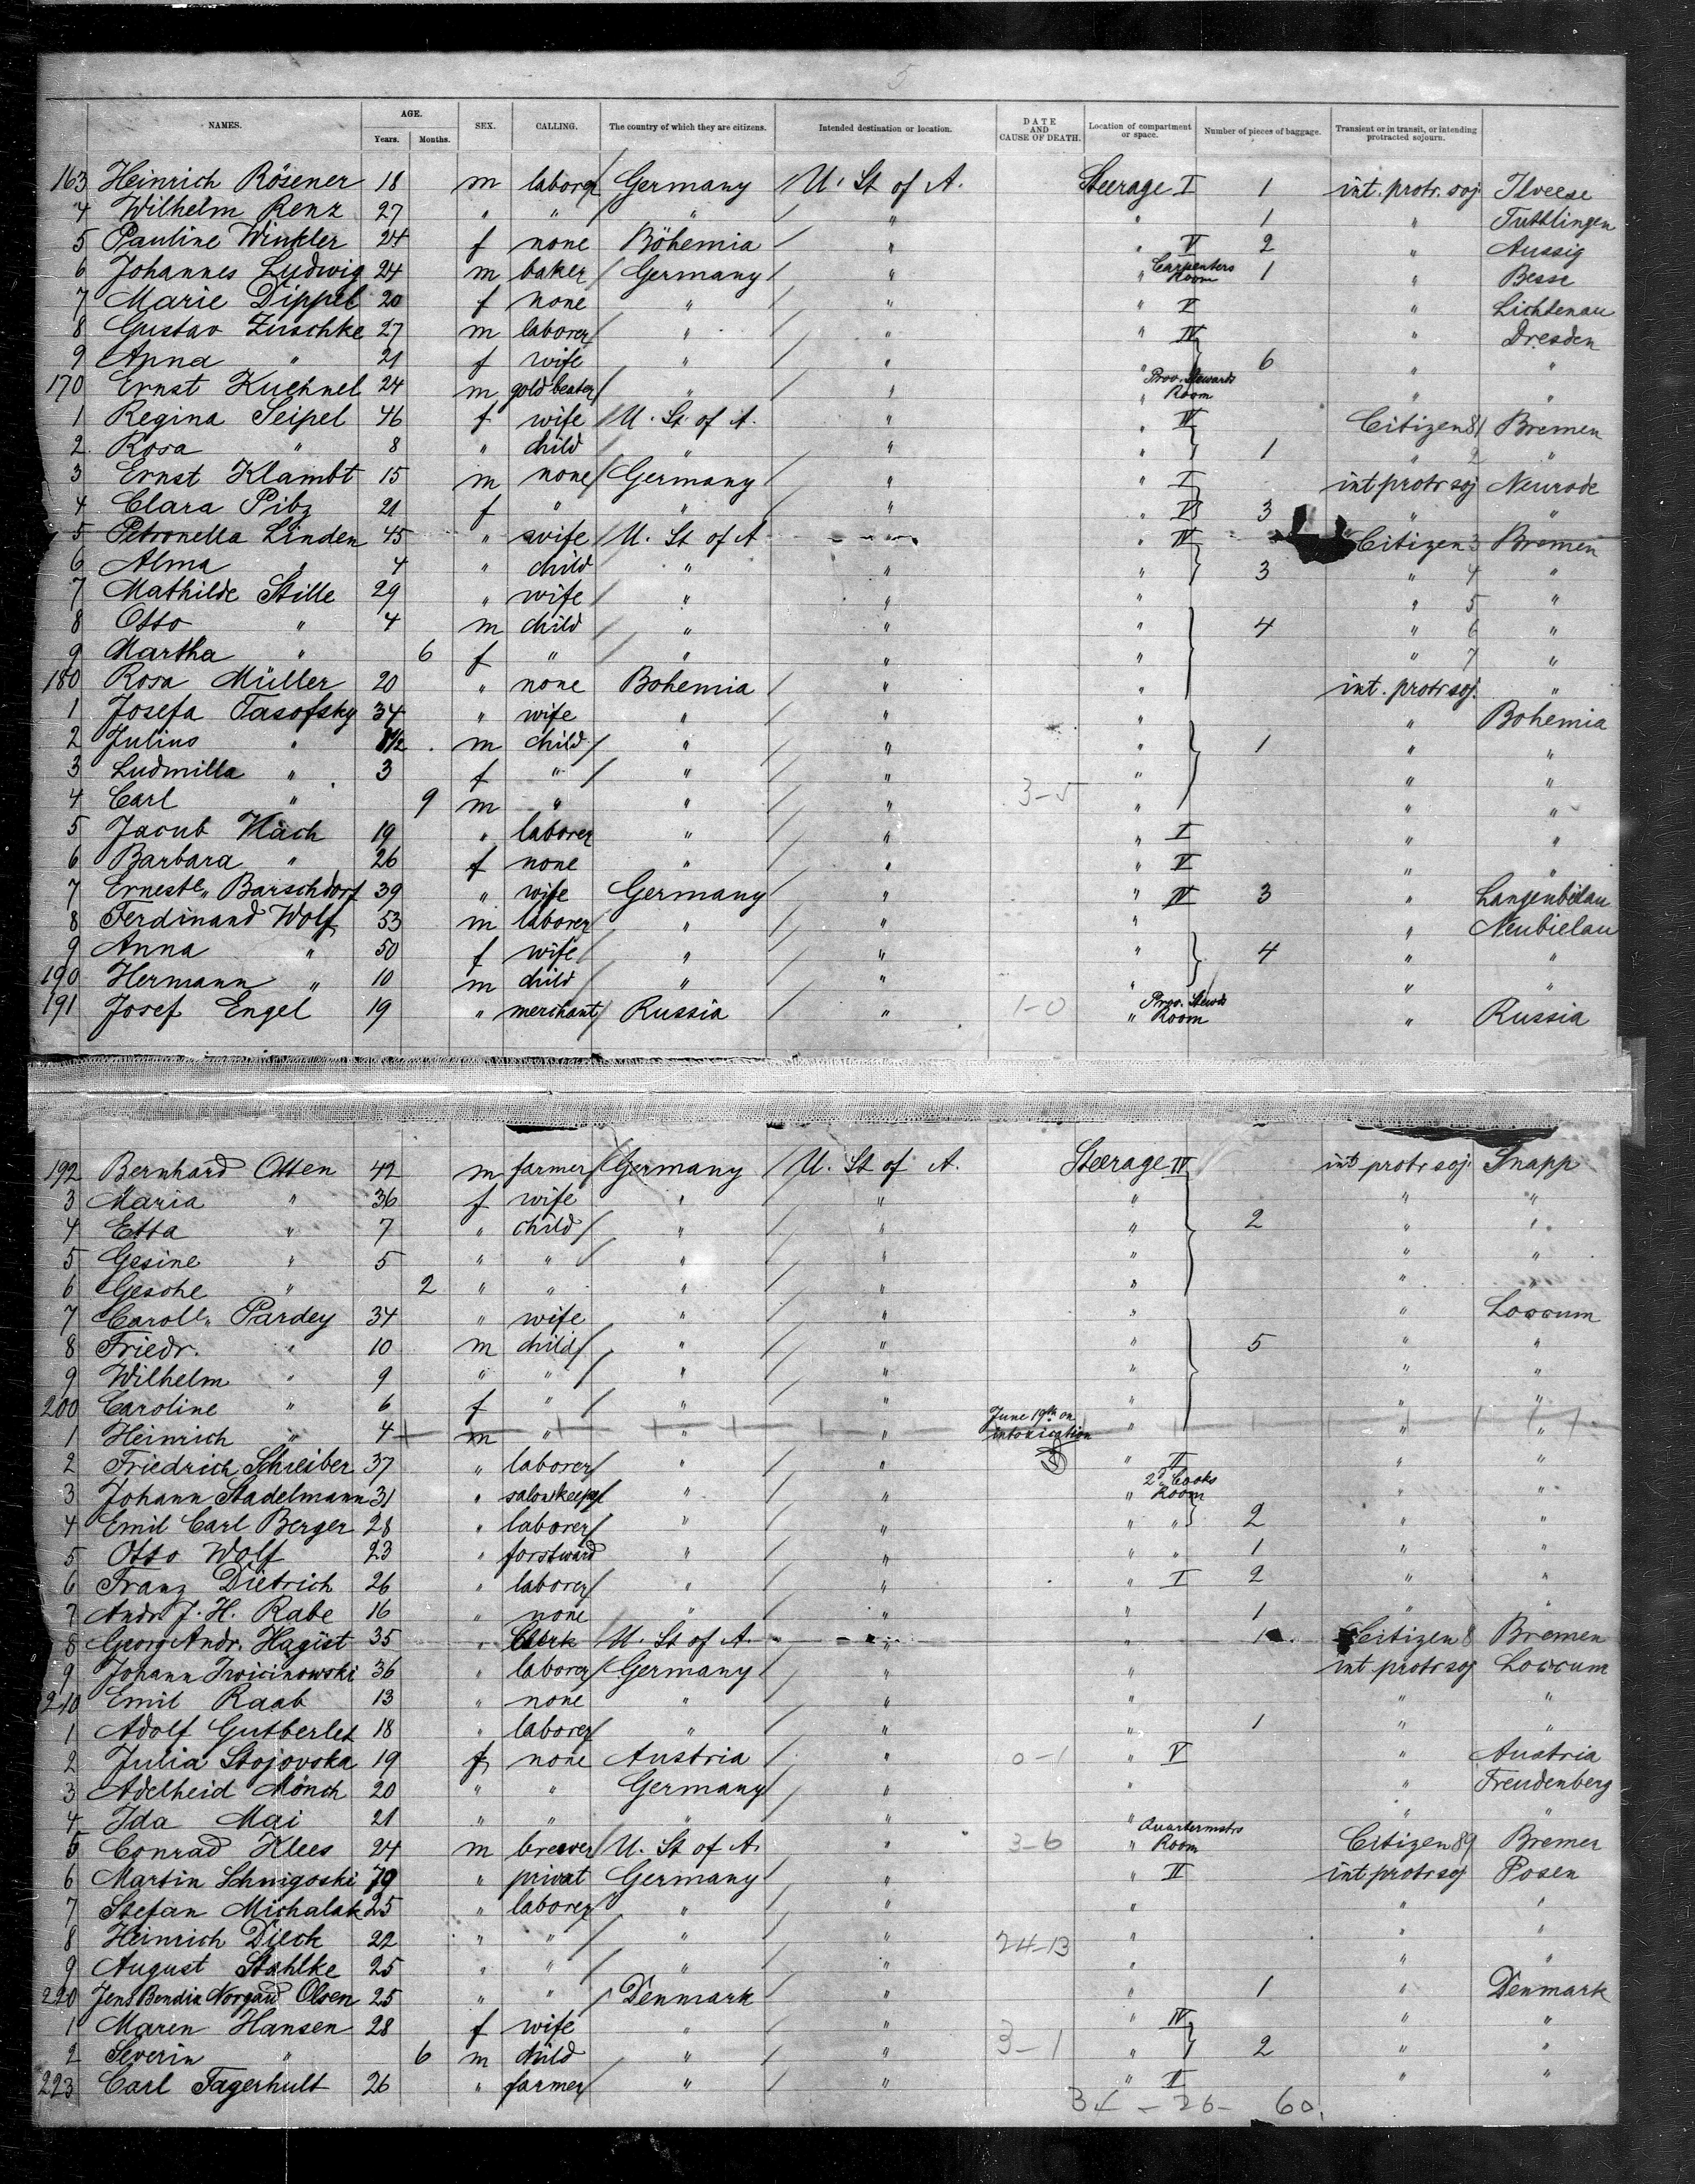 5
NAMES. AGE. Years. Months. SEX. CALLING. The country of which they are citizens. Intended destination or location. DATE AND CAUSE OF DEATH. Location of compartment or space. Number of pieces of baggage. Transient or in transit, or intending protracted sojourn.
163 Heinrich Rösener 18 m laborer Germany U. St of A. Steerage I 1 int. protr. soj Ilveese
4 Wilhelm Renz 27 " " " " " 1 " Tuttlingen
5 Pauline Winkler 24 f none Böhemia " " V 2 " Aussig
6 Johannes Ludwig 24 m baker Germany " " Carpenters Room 1 " Besse
7 Marie Dippel 20 f none " " " V " Lichtenau
8 Gustav Zuschke 27 m laborer " " " IV " Dresden
9 Anna " 21 f wife " " " 6 " "
170 Ernst Kuehnel 24 m gold beater " " " Prov. Stewards Room " "
1 Regina Seipel 46 f wife U. St. of A. " " IV Citizen 81 Bremen
2 Rosa " 8 " child " " " 1 " 2 "
3 Ernst Klambt 15 m none Germany " " I int protr soj Neurode
4 Clara Pibz 21 f " " " " V 3 " "
5 Petronella Linden 45 " wife U. St of A " " IV Citizen 3 Bremen
6 Alma " 4 " child " " " 3 " 4 "
7 Mathilde Stille 29 " wife " " " " 5 "
8 Otto " 4 m child " " " 4 " 6 "
9 Martha " 6 f " " " " " 7 "
180 Rosa Müller 20 " none Bohemia " " int. protr soj. "
1 Josefa Tasofsky 34 " wife " " " " Bohemia
2 Julius " 1/2 m child " " " 1 " "
3 Ludmilla " 3 f " " " " " "
4 Carl " 9 m " " " 3-5 " " "
5 Jacub Hach 19 " laborer " " " I " "
6 Barbara " 26 f none " " " V " "
7 Erneste " Barschdorf 39 " wife Germany " " IV 3 " Langenbielau
8 Ferdinand Wolf 53 m laborer " " " " Neubielau
9 Anna " 50 f wife " " " 4 " "
190 Hermann " 10 m child " " " " "
191 Josef Engel 19 " merchant Russia " 1-0 " Prov. Stewds Room " Russia
192 Bernhard Otten 42 m farmer Germany U. St of A. Steerage IV int protr soj. Snapp
3 Maria " 36 f wife " " " " "
4 Etta " 7 " child " " " 2 " "
5 Gesine " 5 " " " " " " "
6 Gesche " 2 " " " " " " "
7 Caroll " Pardey 34 " wife " " " " Loccum
8 Friedr. " 10 m child " " " 5 " "
9 Wilhelm " 9 " " " " " " "
200 Caroline " 6 f " " " " " "
1 Heinrich " 4 m " " " June 19th on intoxication " " "
2 Friedrich Schreiber 37 " laborer " " " II " "
3 Johann Stadelmann 31 " salonkeeper " " " 2d Cooks Room " "
4 Emil Carl Berger 28 " laborer " " " " 2 " "
5 Otto Wolf 23 " forstward " " " " 1 " "
6 Franz Dietrich 26 " laborer " " " I 2 " "
7 Andr. J. H. Rabe 16 " none " " " 1 " "
8 Georg Andr. Hagist 35 " Clerk U. St of A. " " 1 Citizen 8 Bremen
9 Johann Iwicinowski 36 " laborer Germany " " int protr soj Loccum
210 Emil Raab 13 " none " " " " "
1 Adolf Gutberlet 18 " laborer " " " 1 " "
2 Julia Stojovska 19 f none Austria " 0-1 " V " Austria
3 Adelheid Mönch 20 " " Germany " " " Freudenberg
4 Ida Mai 21 " " " " " " "
5 Conrad Klees 24 m brewer U. St of A. " 3-6 " Quartermstrs Room Citizen 89 Bremen
6 Martin Schmigoski 79 " privat Germany " " II int. protr soj Posen
7 Stefan Michalak 25 " laborer " " " " "
8 Heinrich Dieck 22 " " " " 24-13 " " "
9 August Stahlke 25 " " " " " " "
220 Jens Bendix Norgard Olsen 25 " " Denmark " " 1 " Denmark
1 Maren Hansen 28 f wife " " " IV " "
2 Severin " 6 m child " " 3-1 " 2 " "
223 Carl Fagerhult 26 " farmer " " " II " "
34 - 26 - 60.